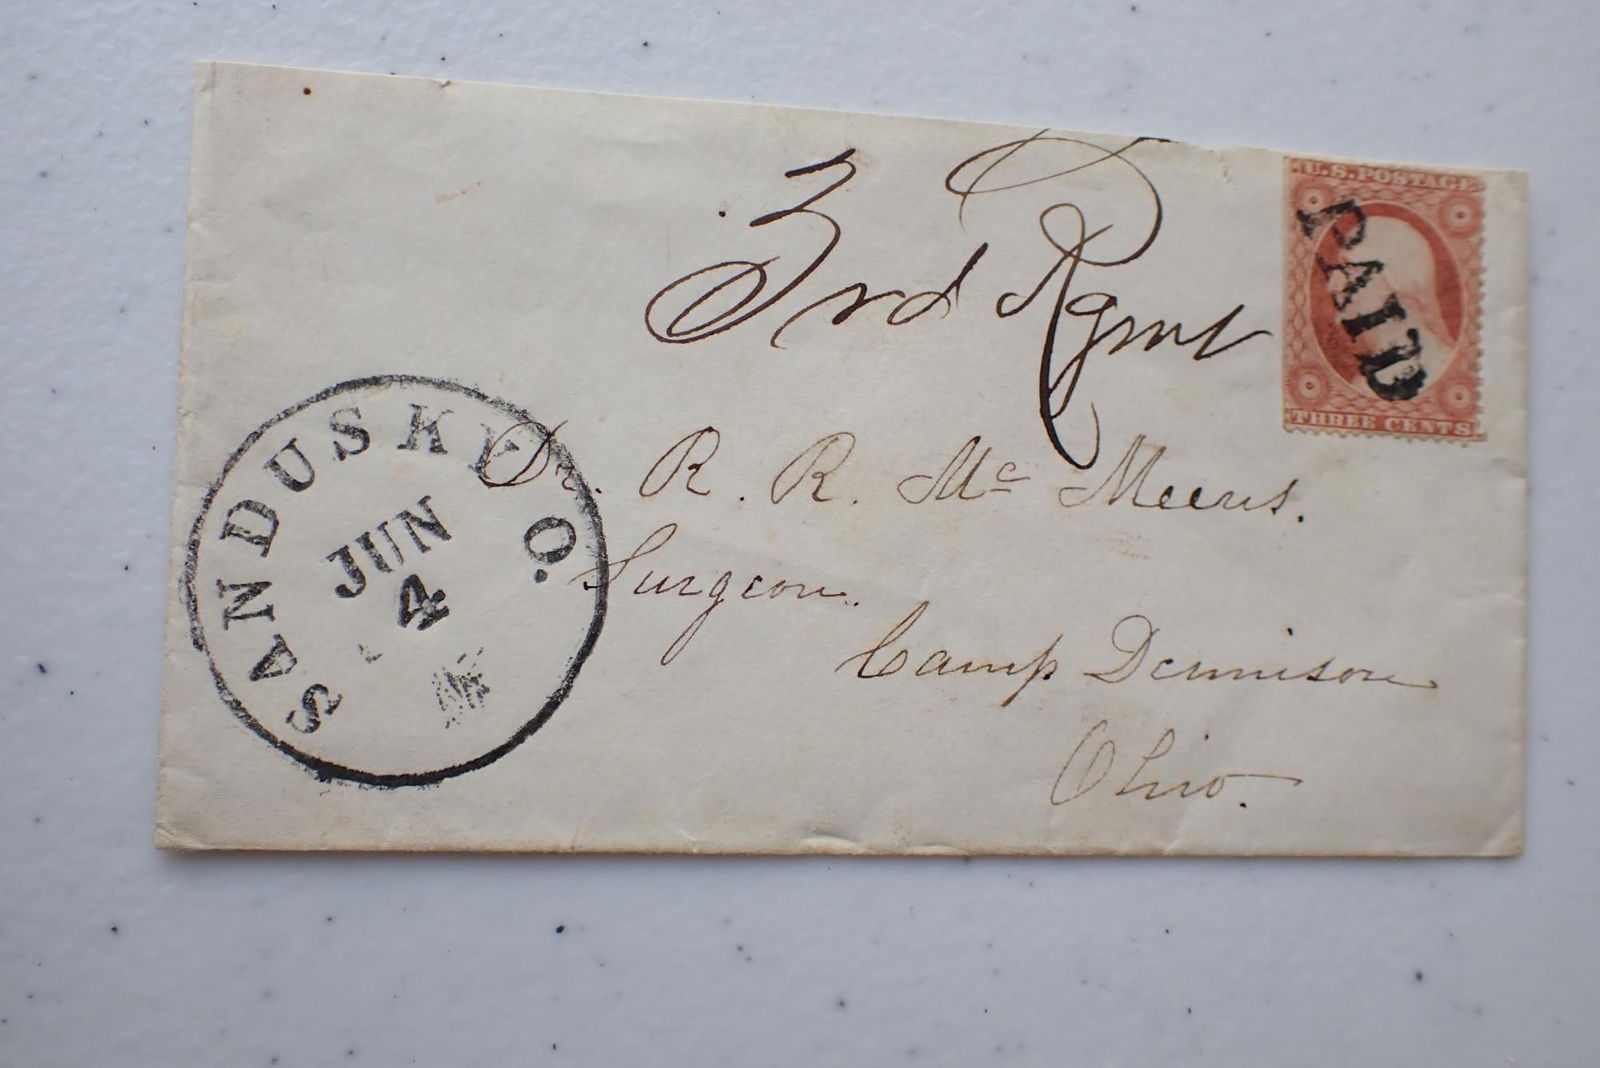 3rd Rgmt
U.S. POSTAGE
PAID
THREE CENTS
SANDUSKY O.
JUN
4
Dr. R. R. Mc Meens.
Surgeon.
Camp Dennison
Ohio.